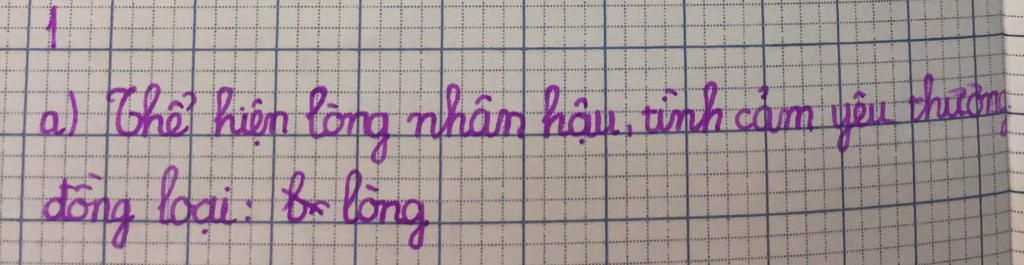 1
a) Thể hiện lòng nhân hậu, tình cảm yêu thương
đồng loại: lòng